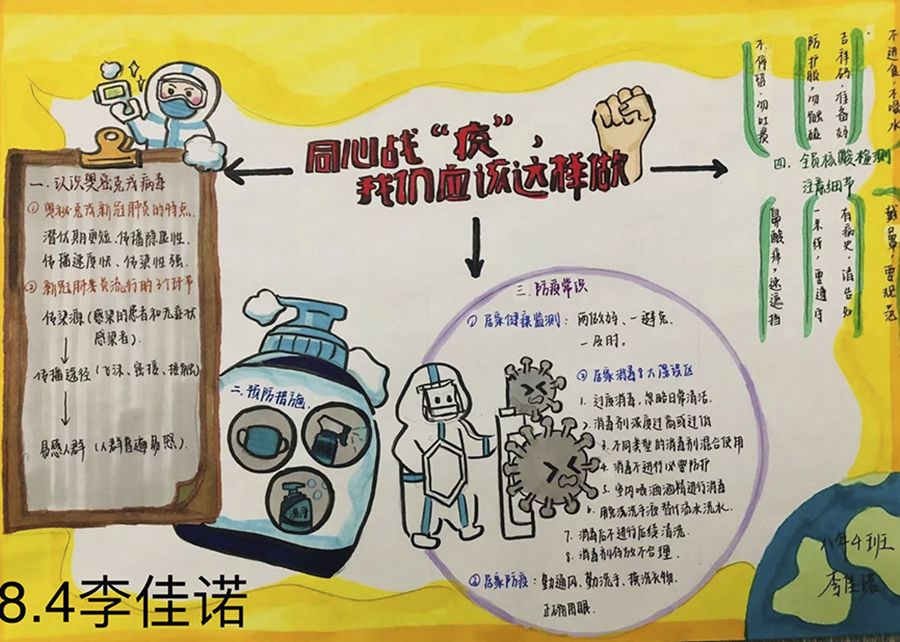 同心战“疫”，
我们应该这样做
一、认识奥密克戎病毒
① 奥秘克戎新冠肺炎的特点.
潜伏期更短、传播隐匿性、
传播速度快、传染性强.
② 新冠肺炎炎流行的3个环节
传染源（感染的患者和无症状
感染者）.
传播途径（飞沫、密接、接触）
易感人群（人群普遍易感）
二、预防措施.
洗手
三、防疫常识
① 居家健康监测：两做好、一避免
一及时。
② 居家消毒8大误区
1. 过度消毒，忽略日常清洁.
2. 消毒剂浓度过高或过低
3. 不同类型的消毒剂混合使用
4. 消毒不进行必要防护
5. 室内喷洒酒精进行消毒
6. 用免洗洗手液替代流水
7. 消毒后不进行后续清洗.
8. 消毒剂存放不合理.
居家防疫：勤通风、勤洗手、
正确用眼.
四、全员核酸检测
注意细节
不进食，不喝水
吉祥码，准备好
防护服，勿触碰
不停留，勿吐痰
戴口罩，要规范
有病史，请告知
一米线，要遵守
鼻酸痒，遮遮挡
八年4班
李佳诺
8.4李佳诺